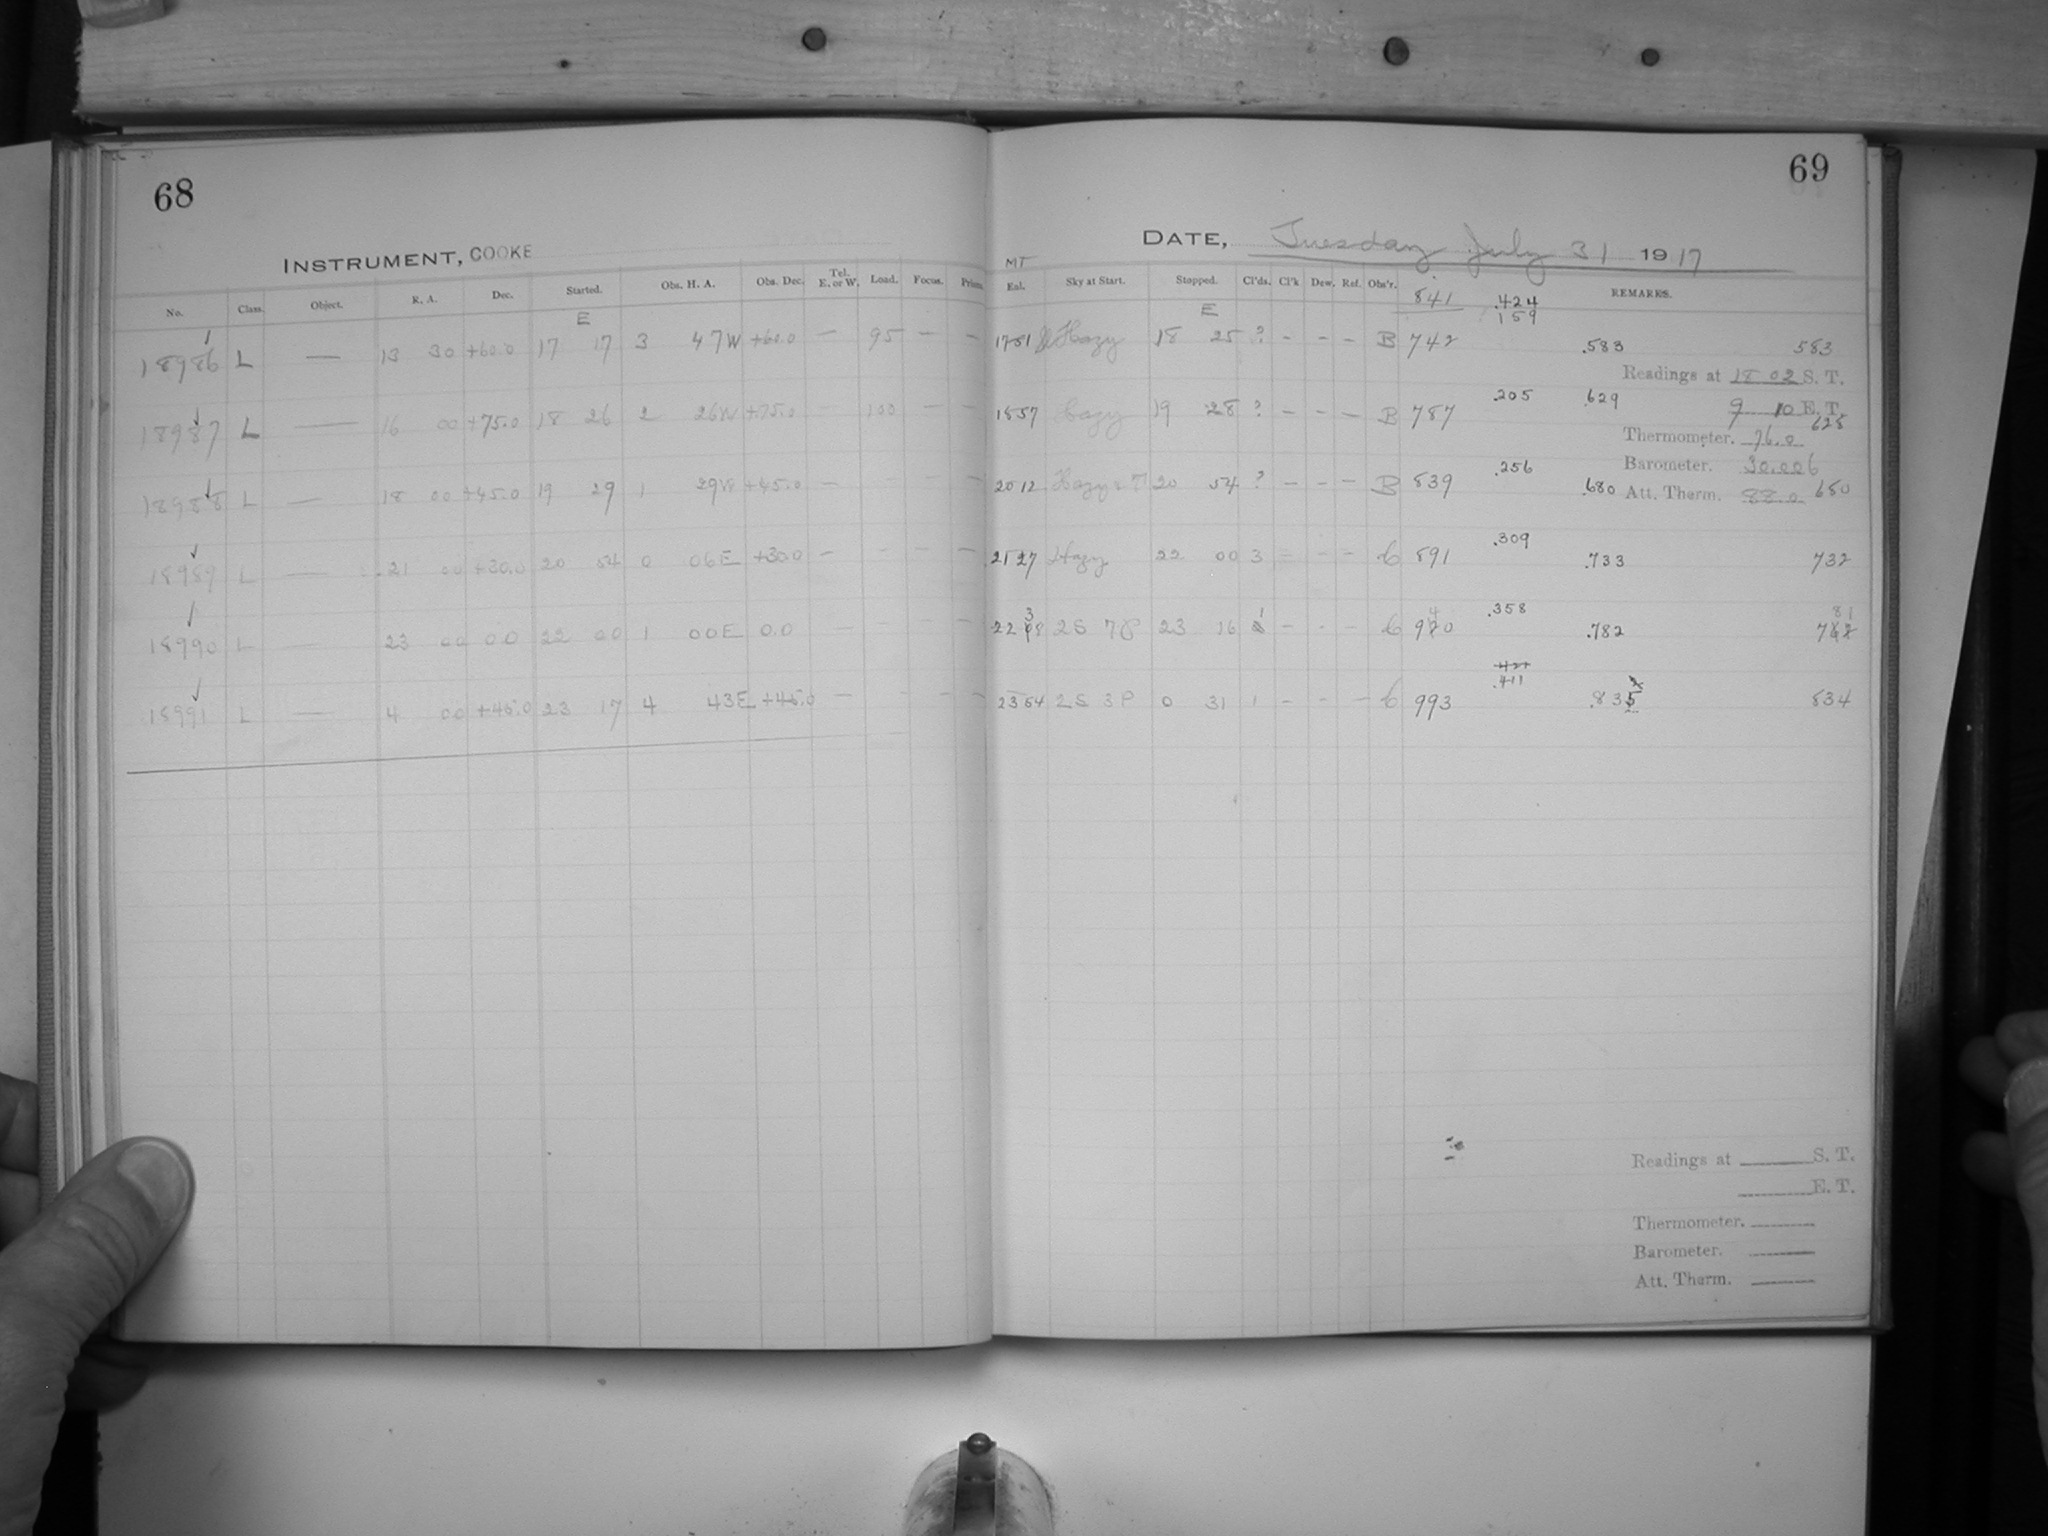 68
INSTRUMENT, COOKE
No. Class. Object. R. A. Dec. Started. Obs. H. A. Obs. Dec. Tel. E. or W. Load. Focus. Prisms
E
18986 L — 13 30 +60.0 17 17 3 47W +60.0 — 95 — —
18987 L — 16 00 +75.0 18 26 2 26W +75.0 — 100 — —
18988 L — 18 00 +45.0 19 29 1 29W +45.0 — - - -
18989 L — 21 00 +30.0 20 54 0 06E +30.0 — - - —
18990 L — 23 00 0.0 22 00 1 00E 0.0 — - - -
18991 L — 4 00 +45.0 23 17 4 43E +45.0 — - - -
69
DATE, Tuesday July 31 1917
MT
Eql. Sky at Start. Stopped. Cl'ds. Cl'k Dew. Ref. Obs'r. 841 .424 REMARKS.
E 159
1751 Hazy 18 25 ? - - - B 742 .583 583
Readings at 18 02 S. T.
1857 Hazy 19 28 ? - - - B 787 .205 .629 9 10 E. T. 628
Thermometer. 76.0
Barometer. 30.006
2012 Hazy 20 54 ? - - - B 839 .256 .680 Att. Therm. 88.0 680
2127 Hazy 22 00 3 - - - C 891 .309 .733 732
22 38 2S 7P 23 16 1 - - - C 940 .358 .782 781
2354 2S 3P 0 31 1 - - - C 993 .411 .835 834
Readings at S. T.
E. T.
Thermometer.
Barometer.
Att. Therm.